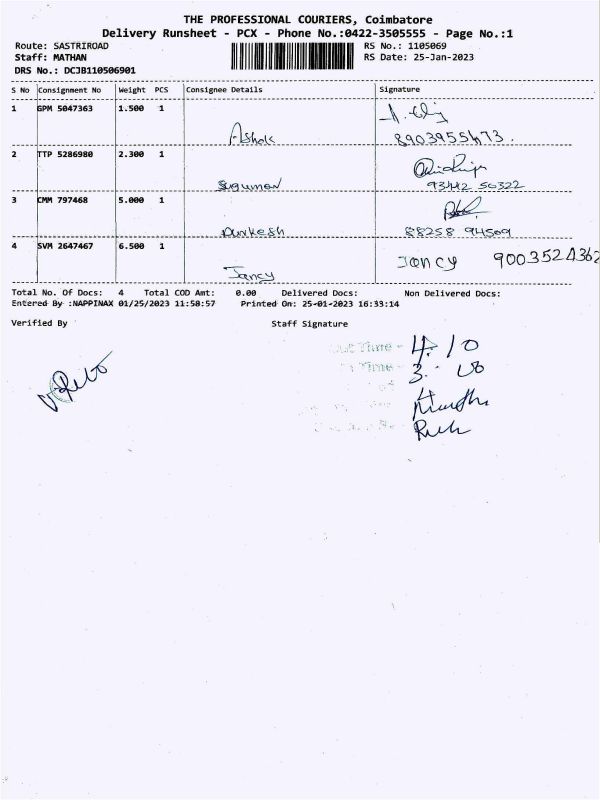 THE PROFESSIONAL COURIERS, Coimbatore
Delivery Runsheet - PCX - Phone No.:0422-3505555 - Page No.:1
Route: SASTRIROAD
RS No.: 1105069
Staff: MATHAN
RS Date: 25-Jan-2023
DRS No.: DCJB110506901
S No Consignment No Weight PCS Consignee Details Signature
1 GPM 5047363 1.500 1
Ashok
2 TTP 5286980 2.300 1
Sugumar
93442 50322
3 CMM 797468 5.000 1
88258 94509
4 SVM 2647467 6.500 1
Jancy 9003524362
Jancy
Total No. Of Docs: 4 Total COD Amt: 0.00 Delivered Docs: Non Delivered Docs:
Entered By :NAPPINAX 01/25/2023 11:58:57 Printed On: 25-01-2023 16:33:14
Verified By Staff Signature
Out Time - 4.10
Time -